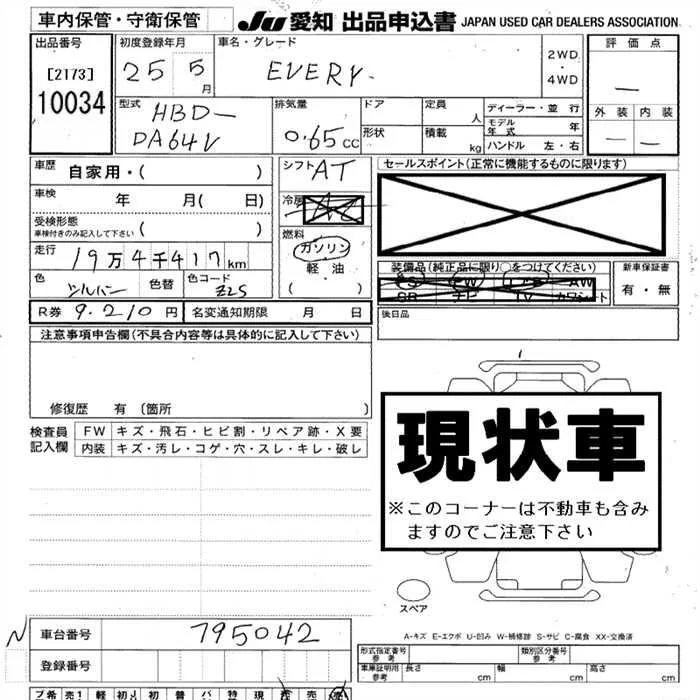 車内保管・守衛保管
JU 愛知 出品申込書 JAPAN USED CAR DEALERS ASSOCIATION
出品番号
[2173]
10034
初度登録年月
25 5 月
車名・グレード
EVERY
2WD
・
4WD
評価点
—
外装 内装
— —
型式
HBD-
DA64V
排気量
0.65 cc
ドア
形状
定員
人
積載
kg
ディーラー・並行
モデル年式 年
ハンドル 左・右
車歴 自家用・( )
車検 年 月( 日)
受検形態
車検付きのみ記入して下さい ( )
走行 19万4千417km
色 シルバー 色替 色コード Z2S
R券 9,210円 名変通知期限 月 日
シフト AT
冷房 AC
燃料
ガソリン
軽油
( )
セールスポイント(正常に機能するものに限ります)
装備品(純正品に限り○をつけてください)
PS PW AW
SR ナビ TV カワシート
新車保証書
有・無
後日品
注意事項申告欄(不具合内容等は具体的に記入して下さい)
修復歴 有 (箇所 )
検査員記入欄
FW キズ・飛石・ヒビ割・リペア跡・X要
内装 キズ・汚レ・コゲ・穴・スレ・キレ・破レ
現状車
※このコーナーは不動車も含み
ますのでご注意下さい
スペア
A-キズ E-エクボ U-凹み W-補修跡 S-サビ C-腐食 XX-交換済
N
車台番号 795042
登録番号
形式指定番号 参考
類別区分番号 参考
車庫証明用 参考
長さ cm 幅 cm 高さ cm